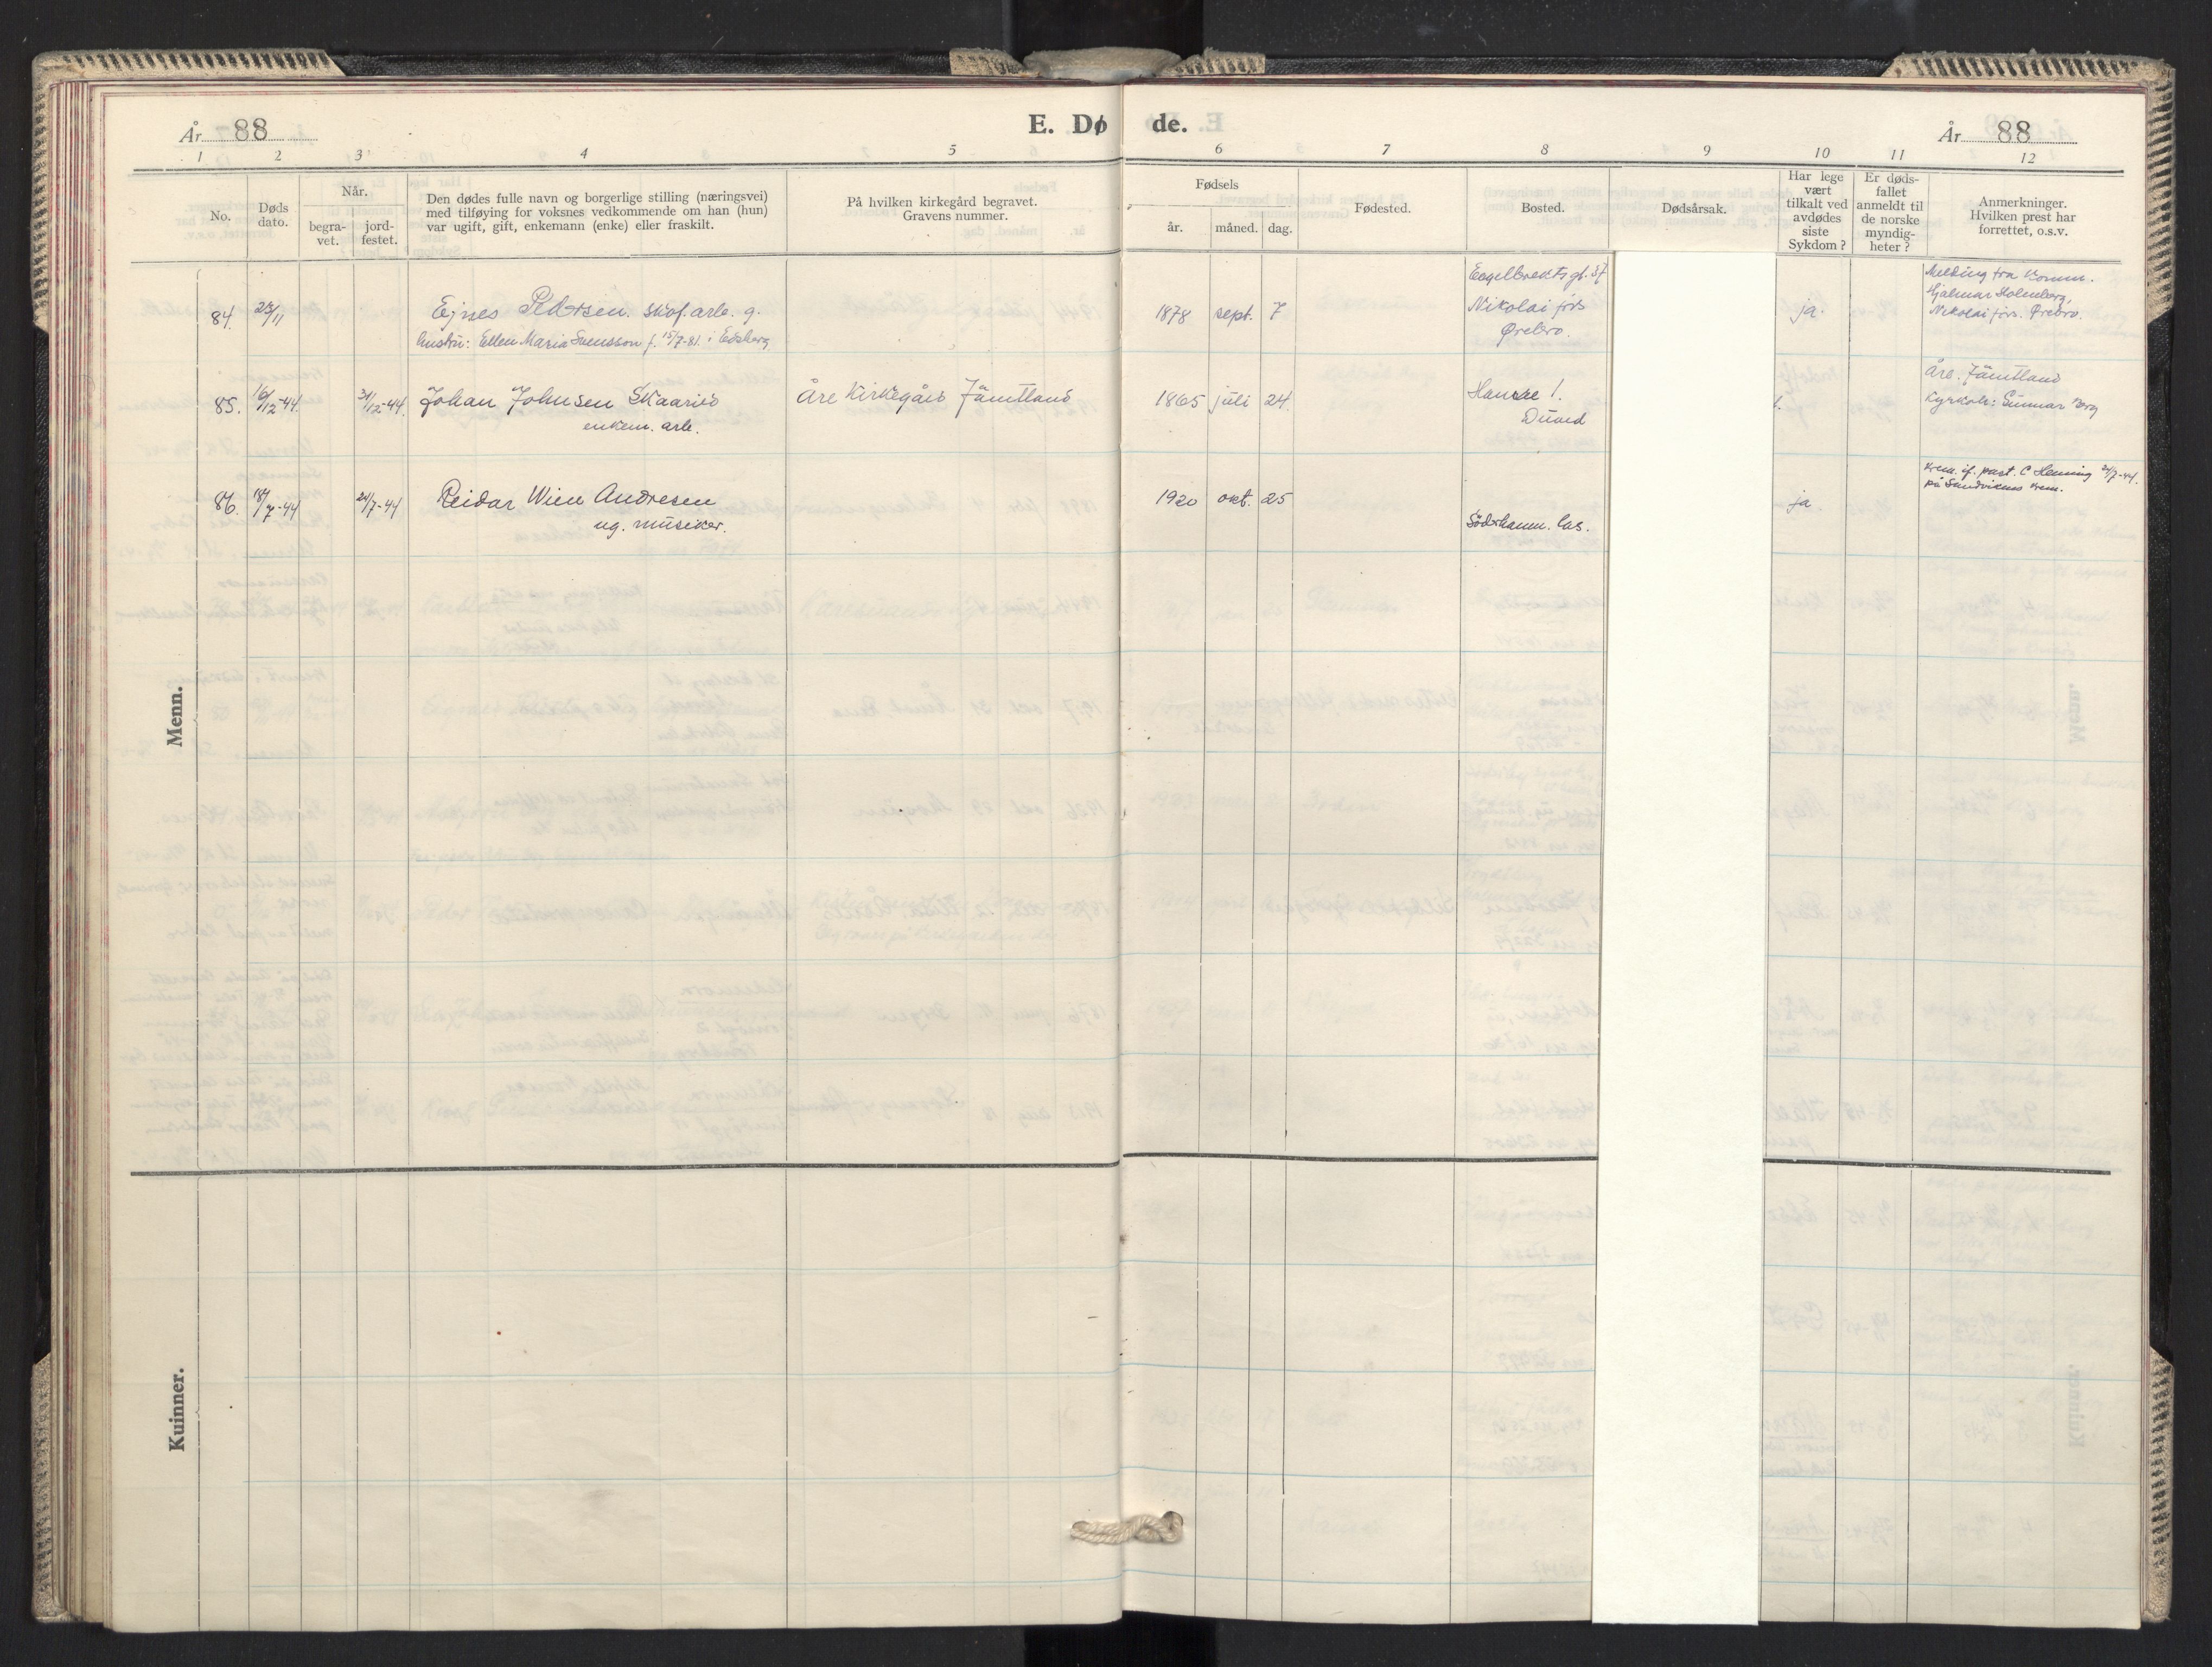 År 88
E. Døde.
År 88
1 2 3 4 5 6 7 8 9 10 11 12
No.
Døds dato.
Når.
begra-vet.
jord-festet.
Den dødes fulle navn og borgerlige stilling (næringsvei)
med tilføying for voksnes vedkommende om han (hun)
var ugift, gift, enkemann (enke) eller fraskilt.
På hvilken kirkegård begravet.
Gravens nummer.
Fødsels
år. måned. dag.
Fødested.
Bosted.
Dødsårsak.
Har lege
vært
tilkalt ved
avdødes
siste
Sykdom?
Er døds-
fallet
anmeldt til
de norske
myndig-
heter?
Anmerkninger.
Hvilken prest har
forrettet, o.s.v.
Menn.
84. 23/11 Ejnes Pedersen. skof. arb. g.
hustru: Ellen Maria Svensson f. 15/7-81. i Edsberg
1878 sept. 7
Engelbrektsgt. 37
Nikolai förs
Ørebro.
ja.
Melding fra komm.
Hjalmar Holmberg,
Nikolai förs. Ørebro.
85. 16/12-44. 31/12-44. Johan Johnsen Skaaries
enkem. arb.
Åre Kirkegård Jämtland
1865 juli 24.
Duved
Åre. Jämtland
Kyrkoh: Gunnar Berg
86. 18/7-44 24/7-44 Reidar Wien Andresen
ug. musiker.
1920 okt. 25
Söderhamn. las.
ja
Krem. if. past. C Henning 24/7-44.
på Sandvikens krem.
Kuinner.